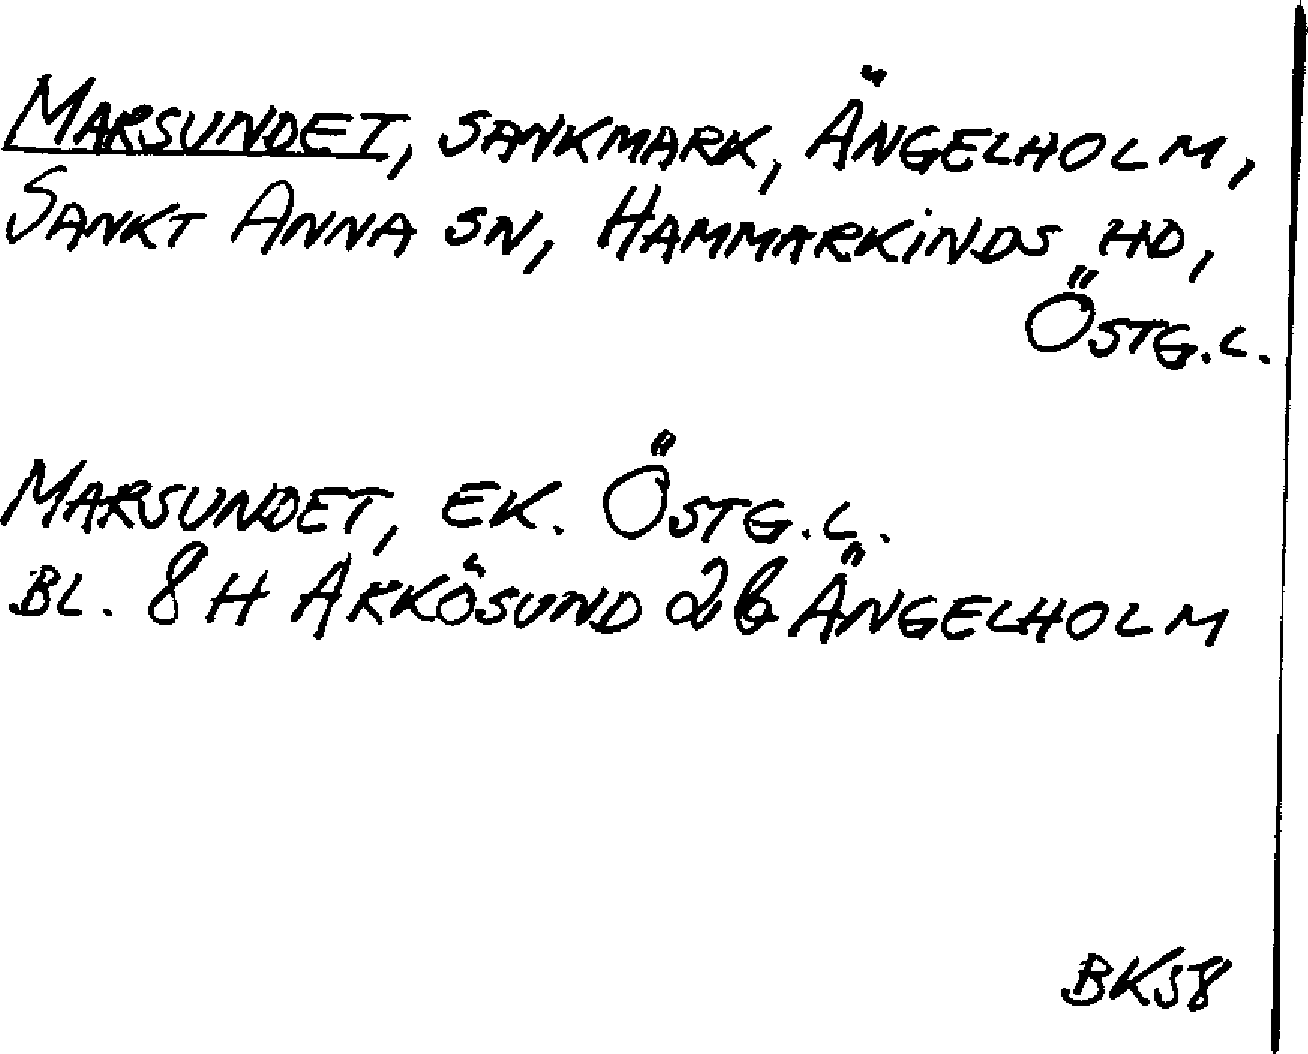 MARSUNDET, SANKMARK, ÄNGELHOLM,
SANKT ANNA SN, HAMMARKINDS HD,
ÖSTG.L.
MARSUNDET, EK. ÖSTG.L.
BL. 8H ARKÖSUND 2b ÄNGELHOLM
BK58